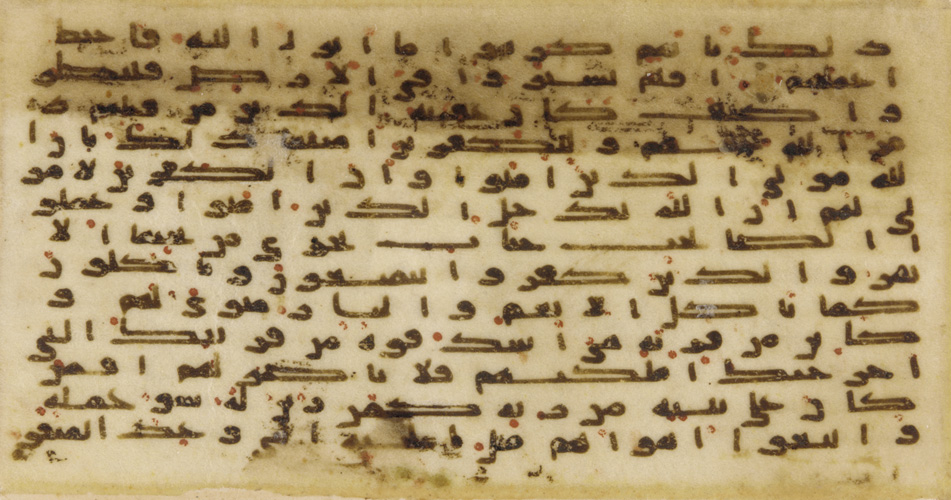 ذلك بانهم كرهوا ما انزل الله فاحبط
اعملهم افلم يسيروا في الارض فينظرو
ا كيف كان عقبة الذين من قبلهم د
مر الله عليهم وللكفرين امثلها ذلك بان ا
لله مولى الذين امنوا وان الكفرين لا مو
لى لهم ان الله يدخل الذين امنوا وعملو
ا الصلحت جنت تجري من تحتها الا
نهر والذين كفروا يتمتعون وياكلون
كما تاكل الانعم والنار مثوى لهم و
كاين من قرية هي اشد قوة من قريتك التي
اخرجتك اهلكنهم فلا ناصر لهم افمن
كان على بينة من ربه كمن زين له سو عمله
واتبعوا اهواهم مثل الجنة التي وعد المتقو